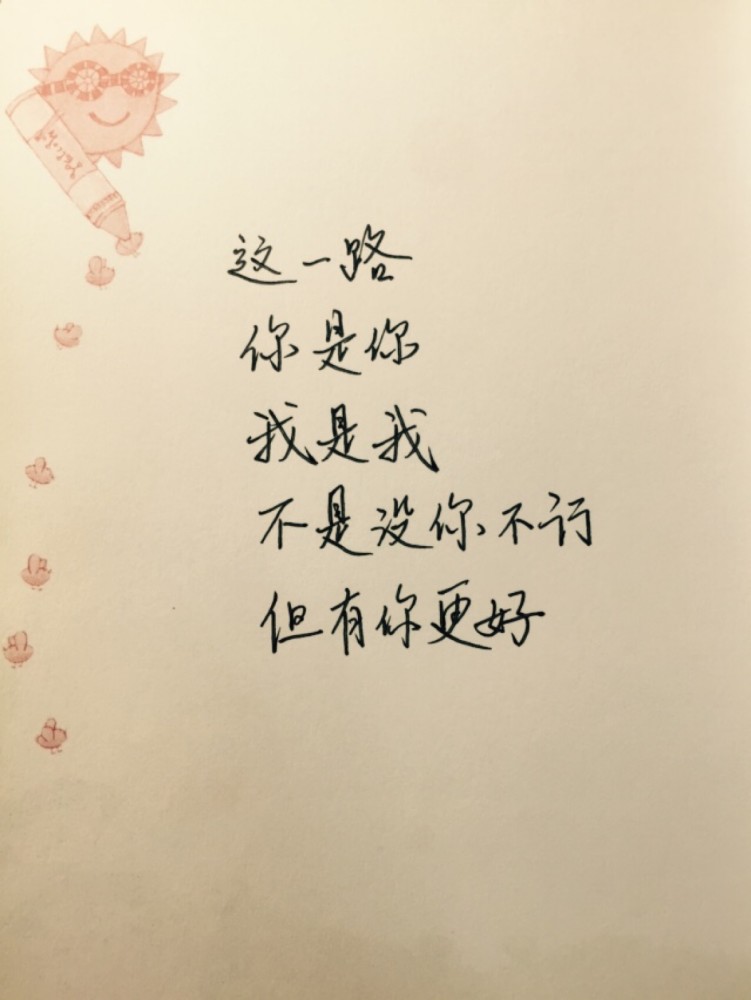 这一路
你是你
我是我
不是没你不行
但有你更好